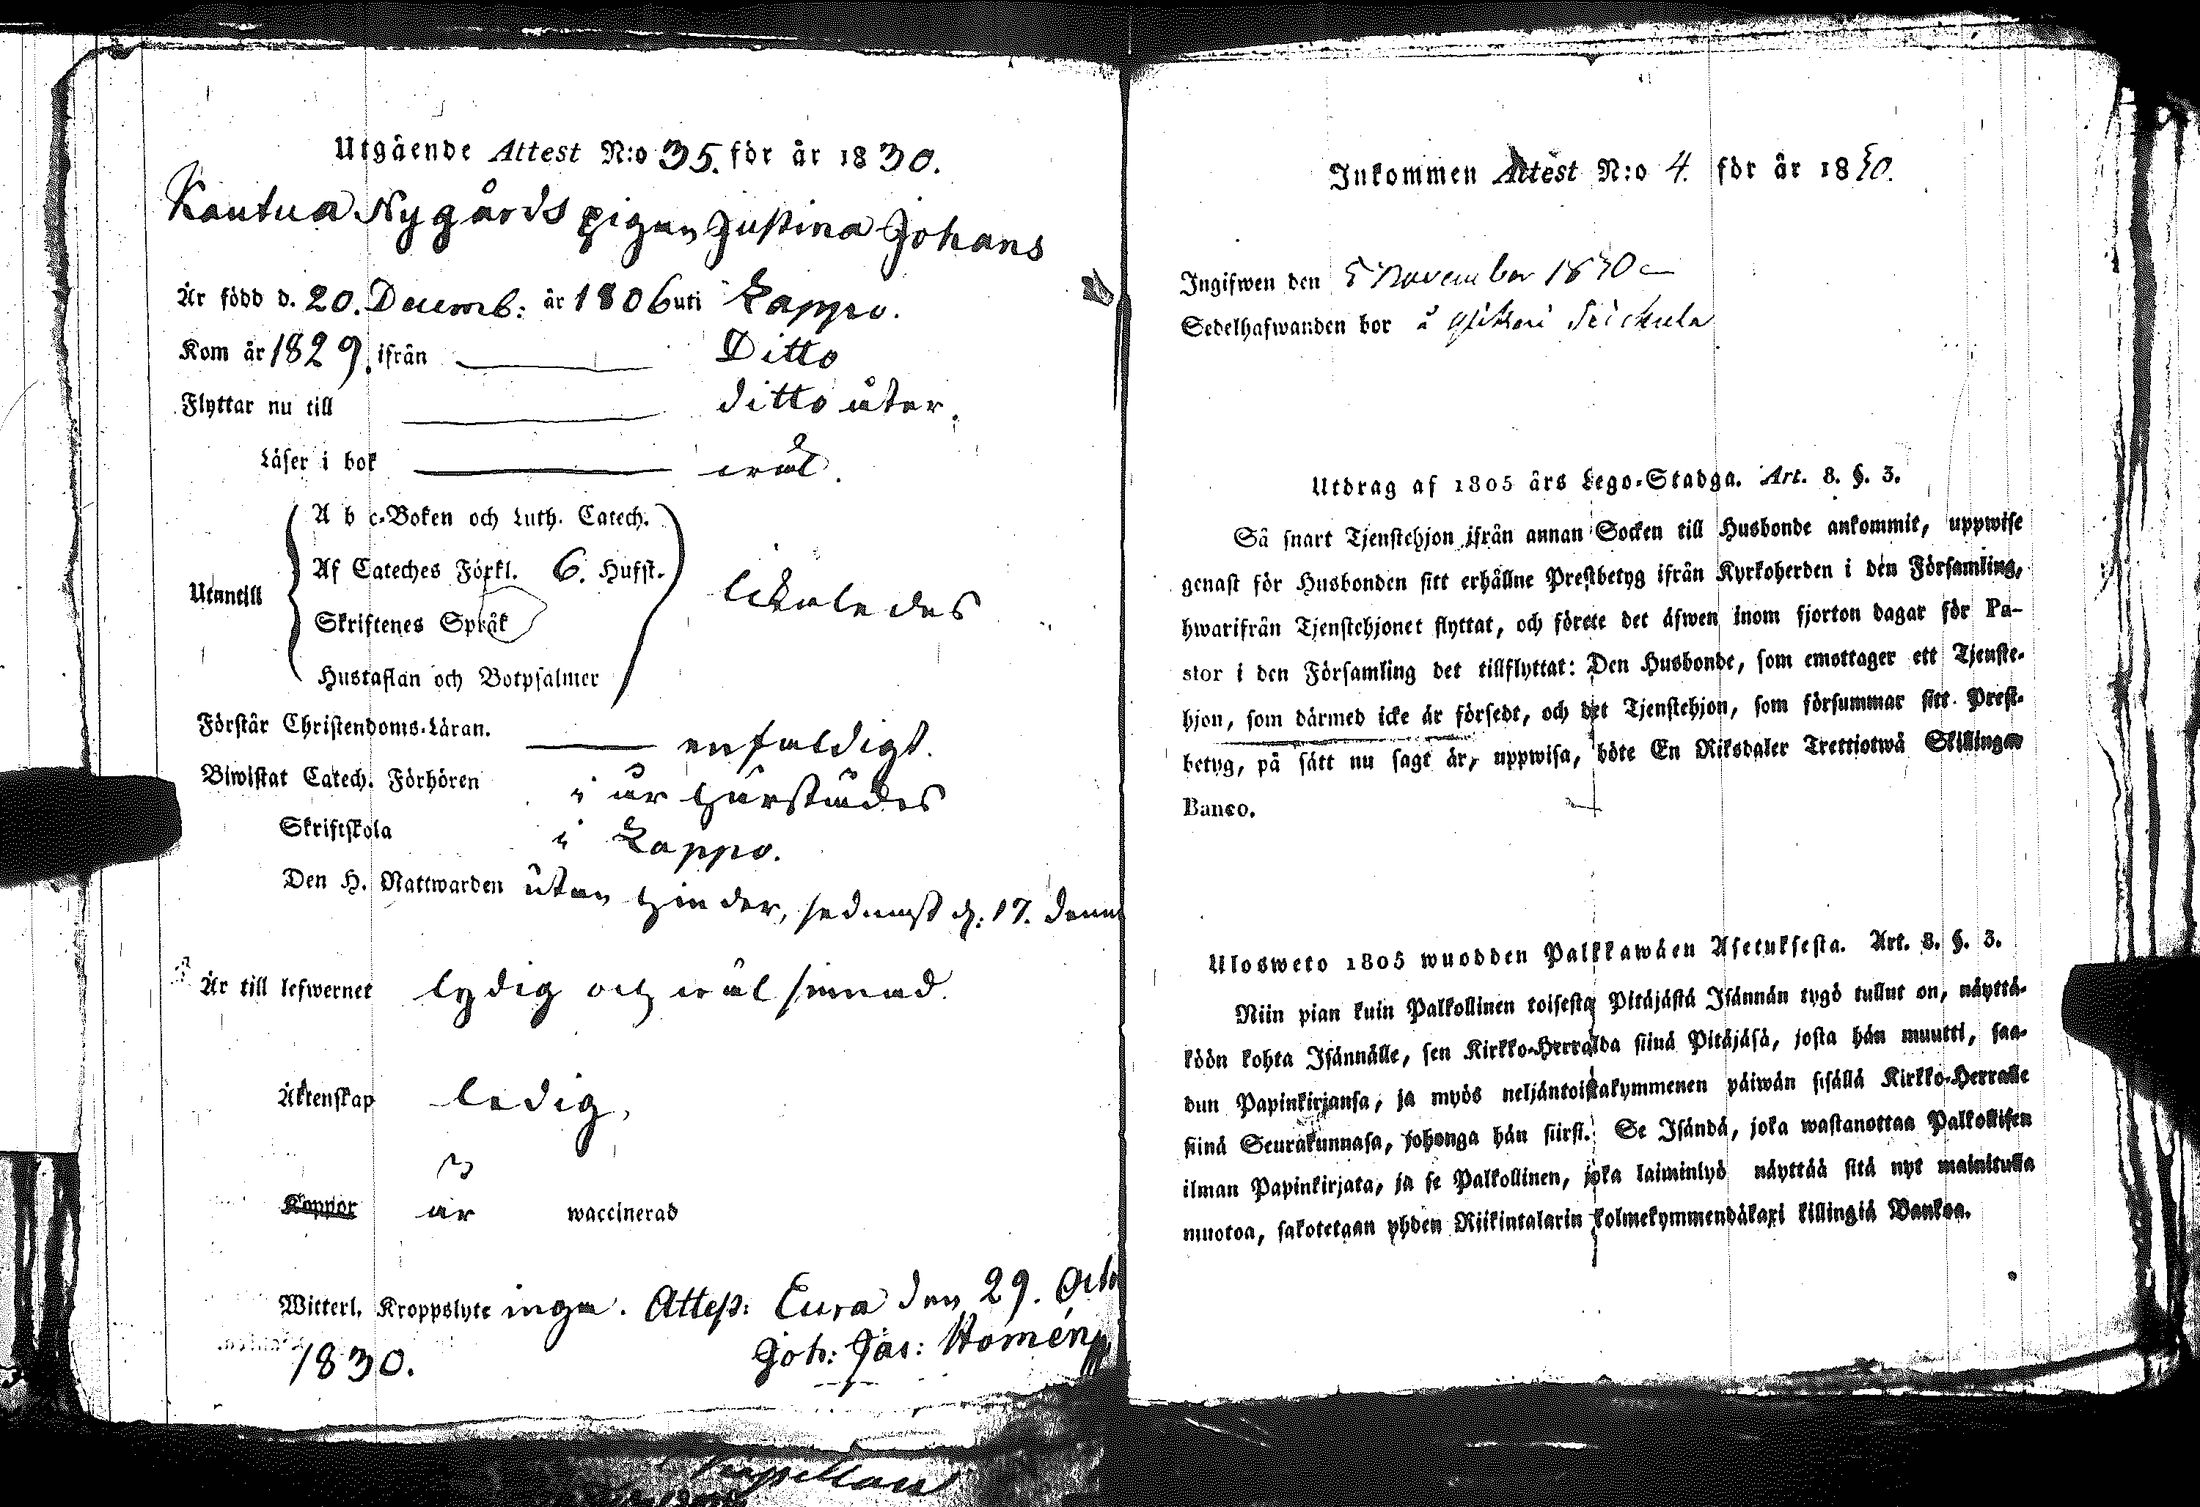 Utgående Attest N:o 35. för år 1830.
Kautua Nygårds pigan Justina Johans
Är född d. 20. Decemb: år 1806 uti Lappo.
Kom år 1829. ifrån Ditto
Flyttar nu till ditto åter.
Läser i bok wäl.
A b c-Boken och Luth. Catech.
Af Cateches Förkl. 6. Hufst.
Utantill likaledes
Skriftenes Språk
Hustaflan och Botpsalmer
Förstår Christendoms-Läran. enfaldigt.
Biwistat Catech. Förhören i år härstädes
Skriftskola i Lappo.
Den H. Nattwarden utan hinder, sednast d. 17. denna
Är till lefwernet lydig och wäl sinnad.
Äktenskap ledig,
Koppor är waccinerad
Witterl. Kroppslyte inga. Attest: Eura den 29. Octo
1830. Joh: Jac: Homén
Inkommen Attest N:o 4. för år 1830.
Ingifwen den 5 November 1830
Sedelhafwanden bor å
Utdrag af 1805 års Lego-Stadga. Art. 8. §. 3.
Så snart Tjenstehjon ifrån annan Socken till Husbonde ankommit, uppwise
genast för Husbonden sitt erhållne Prestbetyg ifrån Kyrkoherden i den Församling,
hwarifrån Tjenstehjonet flyttat, och förete det äfwen inom fjorton dagar för Pa-
stor i den Församling det tillflyttat: Den Husbonde, som emottager ett Tjenste-
hjon, som därmed icke är försedt, och det Tjenstehjon, som försummar sitt Prest-
betyg, på sätt nu sagt är, uppwisa, böte En Riksdaler Trettiotwå Skillingar
Banco.
Ulosweto 1805 wuodden Palkkawäen Asetuksesta. Art. 8. §. 3.
Niin pian kuin Palkollinen toisesta Pitäjästä Isännän tygö tullut on, näyttä-
köön kohta Isännälle, sen Kirkko-Herralda siinä Pitäjäsä, josta hän muutti, saa-
dun Papinkirjansa, ja myös neljäntoistakymmenen päiwän sisällä Kirkko-Herralle
siinä Seurakunnasa, johonga hän siirsi. Se Isändä, joka wastanottaa Palkollisen
ilman Papinkirjata, ja se Palkollinen, joka laiminlyö näyttää sitä nyt mainitulla
muotoa, sakotetaan yhden Riikintalarin kolmekymmendäkaxi killingiä Bankoa.